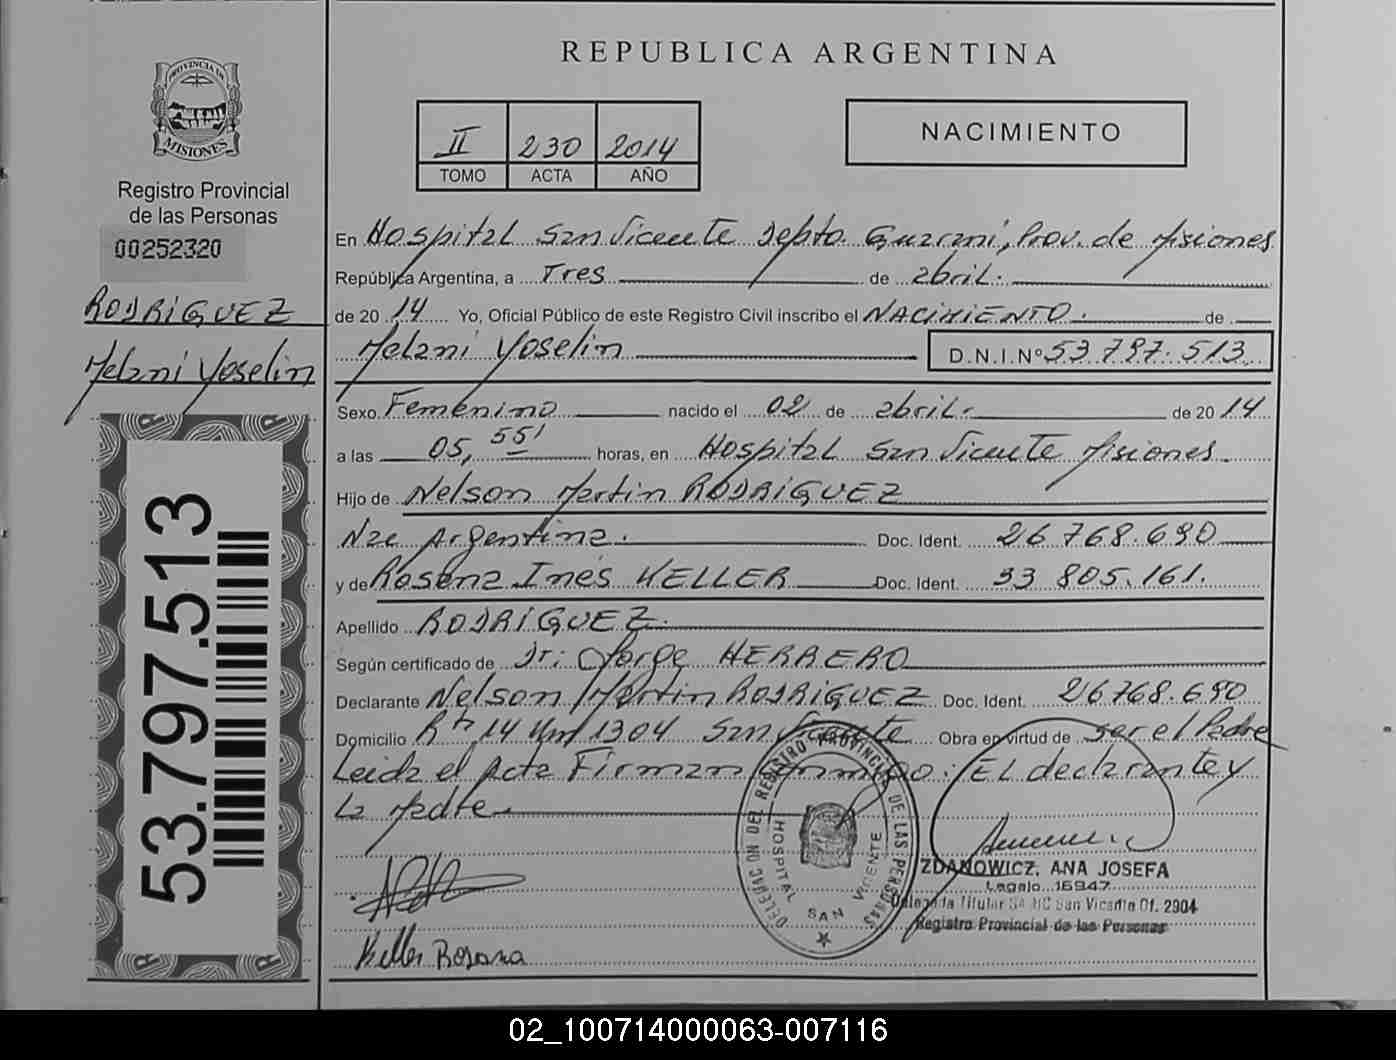 REPUBLICA ARGENTINA
PROVINCIA DE
MISIONES
Registro Provincial
de las Personas
00252320
RODRÍGUEZ
Melani Yoselin
53.797.513
II 230 2014
TOMO ACTA AÑO
NACIMIENTO
En Hospital San Vicente Depto. Guaraní, Prov. de Misiones
República Argentina, a Tres de abril.
de 2014 Yo, Oficial Público de este Registro Civil inscribo el NACIMIENTO. de
Melani Yoselin D.N.I.Nº 53.797.513
Sexo Femenino nacido el 02 de abril. de 2014
a las 05,55' horas, en Hospital San Vicente Misiones.
Hijo de Nelson Martin RODRÍGUEZ
Nac Argentina. Doc. Ident. 26.768.690
y de Rosana Inés KELLER Doc. Ident. 33.805.161.
Apellido RODRÍGUEZ.
Según certificado de Dr: Jorge HERRERO
Declarante Nelson Martin RODRÍGUEZ Doc. Ident. 26.768.690
Domicilio Rta 14 Km 1304 San Vicente Obra en virtud de ser el Padre
Leida el Acta Firman conmigo: EL declarante y
la Madre.
DELEGACION DEL REGISTRO PROVINCIAL DE LAS PERSONAS
HOSPITAL SAN VICENTE
ZDANOWICZ, ANA JOSEFA
Legajo 16947
Delegada Titular San Vicente 01. 2904
Registro Provincial de las Personas
Keller Rosana
02_100714000063-007116